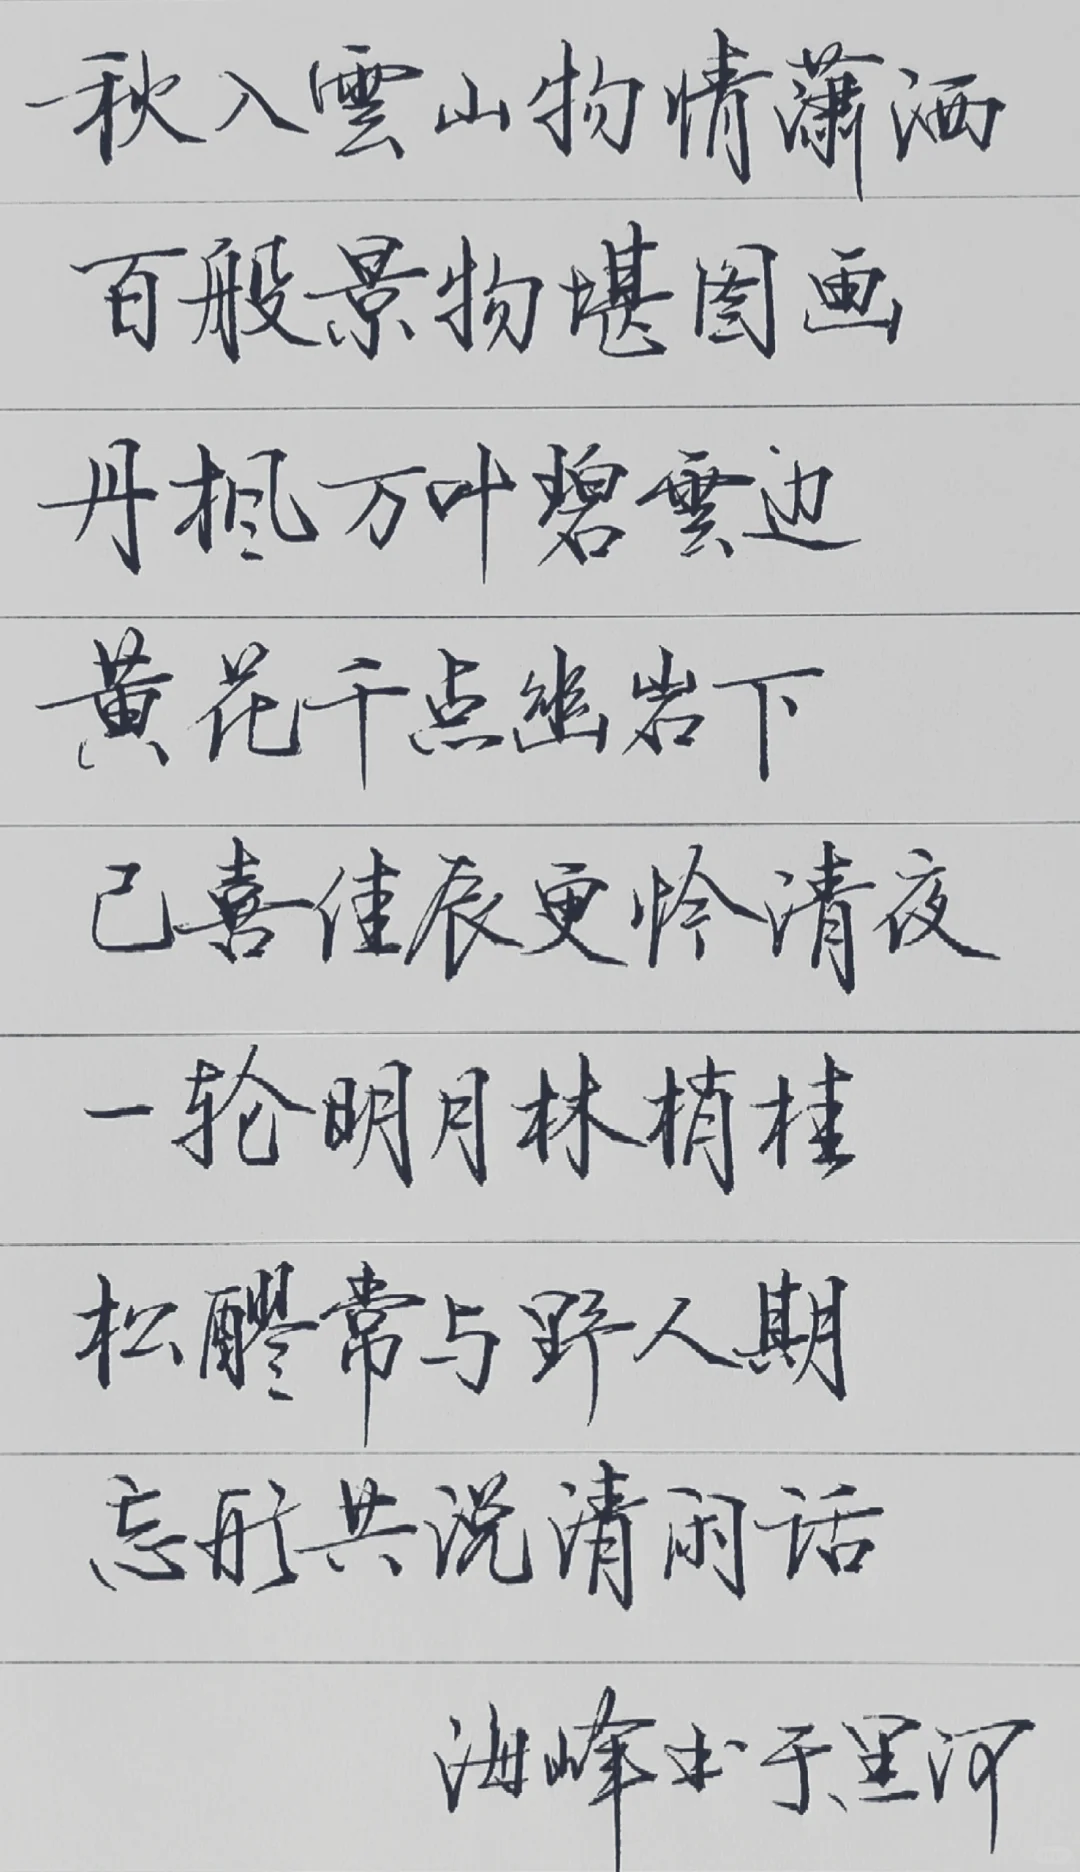 秋入雲山物情潇洒
百般景物堪图画
丹枫万叶碧雲边
黄花千点幽岩下
已喜佳辰更怜清夜
一轮明月林梢挂
松醪常与野人期
忘形共说清闲话
海峰书于黑河